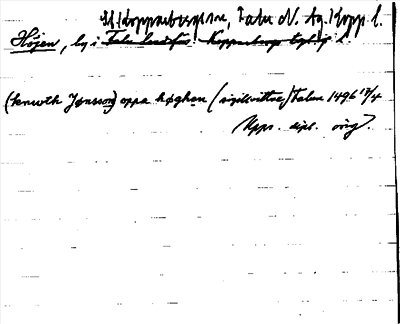 St Kopparbergs sn, Falu N. tg. Kopp l.
Höjen, by i Falu landsförs. Kopparbergs tgl. l.
(Kenwth Jønsson) oppa høghen (sigillvittne) Falun 1496 17/4
Upps. dipl. orig.